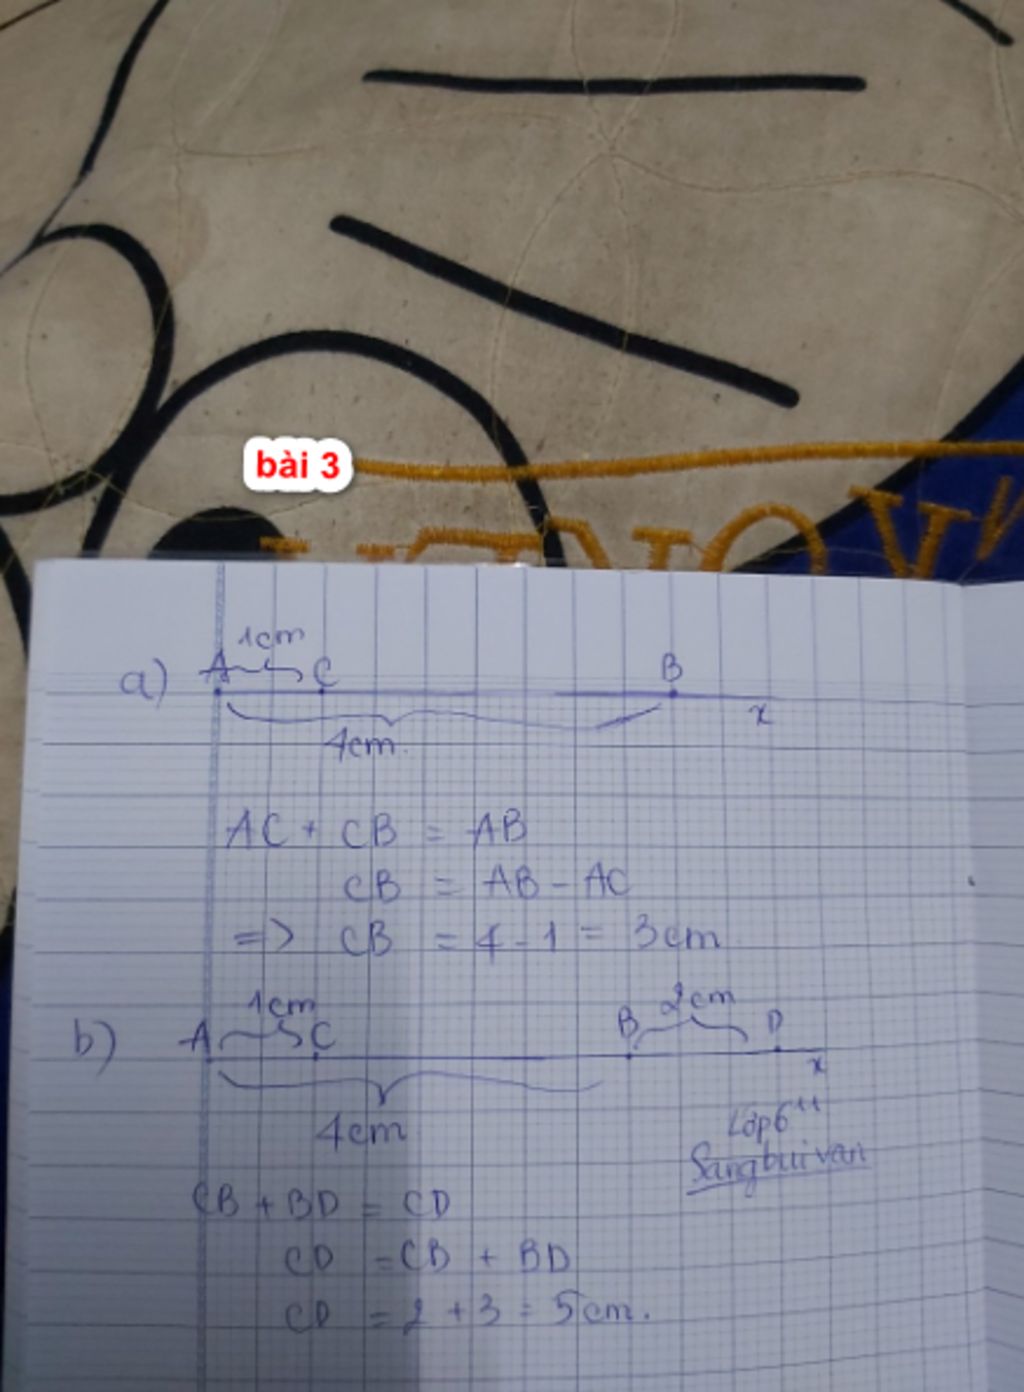 bài 3
1cm
a) A C B
x
4cm.
AC + CB = AB
CB = AB - AC
=> CB = 4 - 1 = 3cm
1cm 2cm
b) A C B D
x
4cm
Lớp 6¹¹
Sangbuivan
CB + BD = CD
CD = CB + BD
CD = 2 + 3 = 5cm.